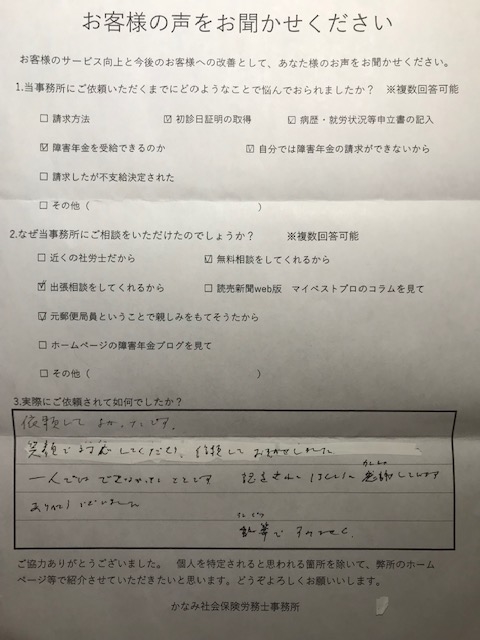 お客様の声をお聞かせください
お客様のサービス向上と今後のお客様への改善として、あなた様のお声をお聞かせください。
1.当事務所にご依頼いただくまでにどのようなことで悩んでおられましたか？ ※複数回答可能
☐ 請求方法 ☑ 初診日証明の取得 ☑ 病歴・就労状況等申立書の記入
☑ 障害年金を受給できるのか ☑ 自分では障害年金の請求ができないから
☐ 請求したが不支給決定された
☐ その他（ ）
2.なぜ当事務所にご相談をいただけたのでしょうか？ ※複数回答可能
☐ 近くの社労士だから ☑ 無料相談をしてくれるから
☑ 出張相談をしてくれるから ☐ 読売新聞web版 マイベストプロのコラムを見て
☑ 元郵便局員ということで親しみをもてそうたから
☐ ホームページの障害年金ブログを見て
☐ その他（ ）
3.実際にご依頼されて如何でしたか？
依頼してよかったです。
笑顔で対応してくださり、信頼しておまかせしました
一人ではできなかったことです 感謝してます
ありがとうございました
乱筆ですみません
ご協力ありがとうございました。 個人を特定されると思われる箇所を除いて、弊所のホーム
ページ等で紹介させていただきたいと思います。どうぞよろしくお願いいします。
かなみ社会保険労務士事務所